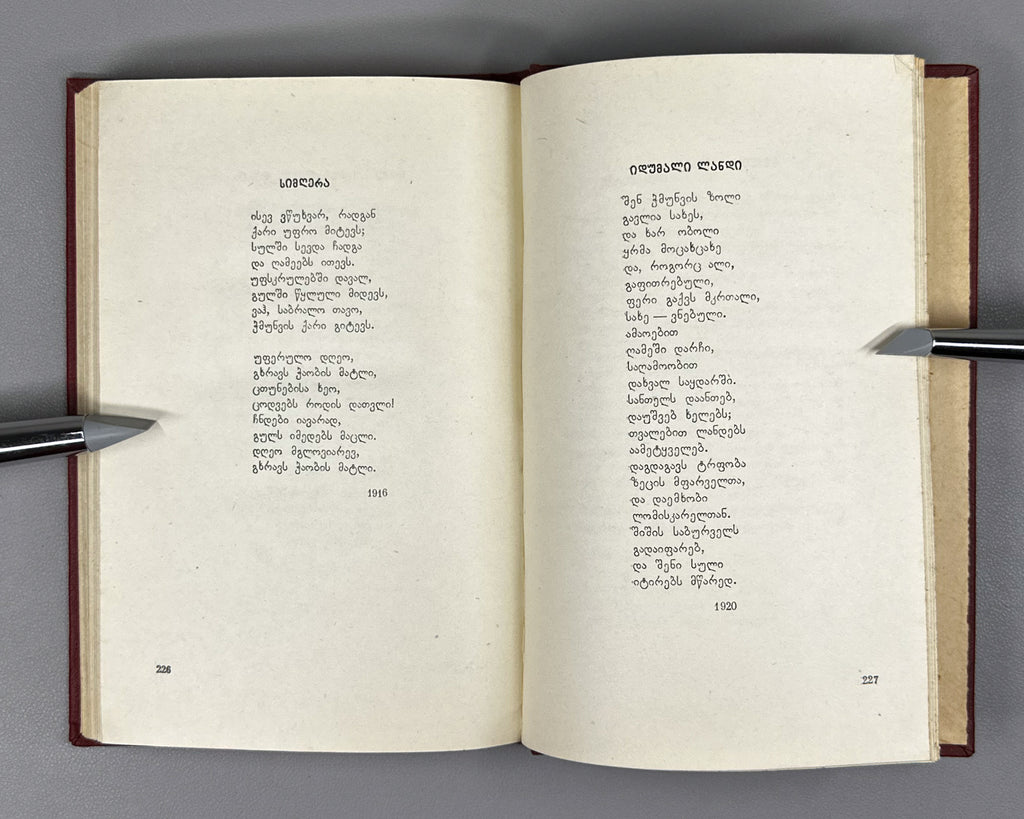 სიმღერა
ისევ ვწუხვარ, რადგან
ქარი უფრო მიტევს;
სულში სევდა ჩადგა
და ღამეებს ითევს.
უფსკრულებში დავალ,
გულში წყლული მიდევს,
ვაჰ, საბრალო თავო,
ჭმუნვის ქარი გიტევს.
უფერულო დღეო,
გხრავს ჭაობის მატლი,
ცთუნებისა ხეო,
ცოდვებს როდის დათვლი!
ჩნდები იავარად,
გულს იმედებს მაცლი.
დღეო მგლოვიარევ,
გხრავს ჭაობის მატლი.
1916
226
იდუმალი ლანდი
შენ ჭმუნვის ზოლი
გავლია სახეს,
და ხარ ობოლი
ყრმა მოცახცახე
და, როგორც ალი,
გაფითრებული,
ფერი გაქვს მკრთალი,
სახე — ვნებული.
ამაოებით
ღამეში დარჩი,
საღამოობით
დახვალ საყდარში.
სანთელს დაანთებ,
დაუშვებ ხელებს;
თვალებით ლანდებს
აამეტყველებ.
დაგდაგავს ტრფობა
ზეცის მფარველთა,
და დაემხობი
ლომისკარელთან.
შიშის საბურველს
გადაიფარებ,
და შენი სული
იტირებს მწარედ.
1920
227